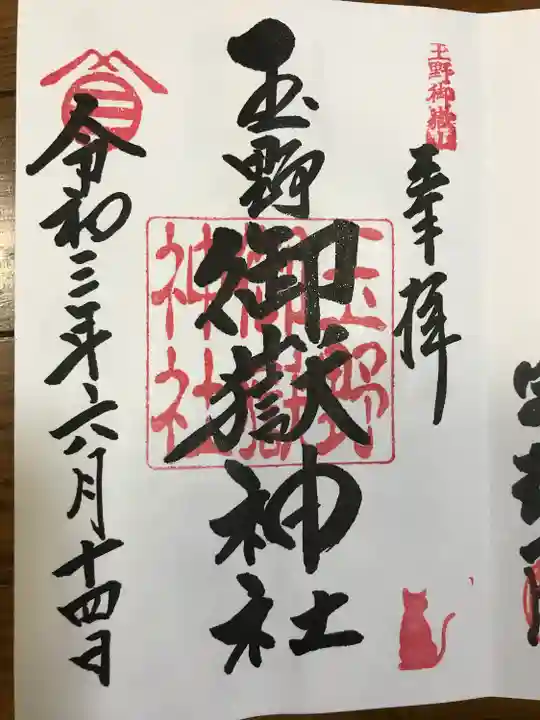 玉野御嶽山
奉拝
玉野御嶽神社
玉野御嶽神社
令和三年六月十四日